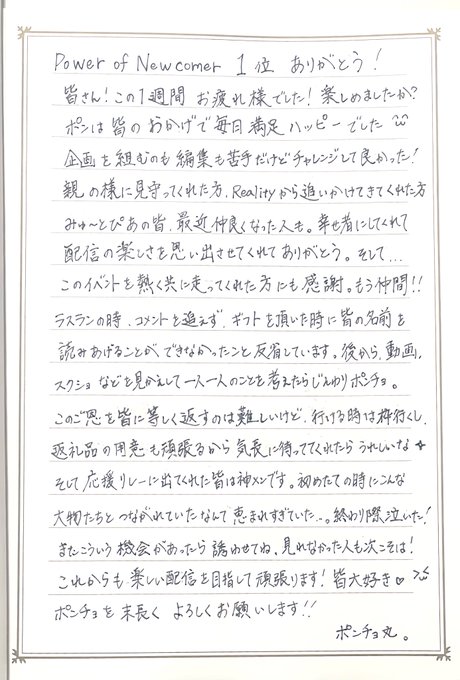 Power of Newcomer 1位 ありがとう!
皆さん!この1週間 お疲れ様でした!楽しめましたか?
ポンは皆のおかげで毎日満足ハッピーでした
企画を組むのも編集も苦手だけどチャレンジして良かった!
親の様に見守ってくれた方、Realityから追いかけてきてくれた方
みゅ〜とぴあの皆、最近仲良くなった人も。幸せ者にしてくれて
配信の楽しさを思い出させてくれてありがとう。そして...
このイベントを熱く共に走ってくれた方にも感謝。もう仲間!!
ラスランの時、コメントを追えず、ギフトを頂いた時に皆の名前を
読みあげることができなかったこと反省しています。後から、動画、
スクショなどを見かえして一人一人のことを考えたらじんわりポンチョ。
このご恩を皆に等しく返すのは難しいけど、行ける時は枠行くし、
返礼品の用意も頑張るから気長に待っててくれたらうれしいな✦
そして応援リレーに出てくれた皆は神メンです。初めての時にこんな
大物たちとつながれていたなんて恵まれすぎていた...。終わり際泣いた!
またこういう機会があったら誘わせてね、見れなかった人も次こそは!
これからも楽しい配信を目指して頑張ります!皆大好き♡
ポンチョを末長くよろしくお願いします!!
ポンチョ丸。